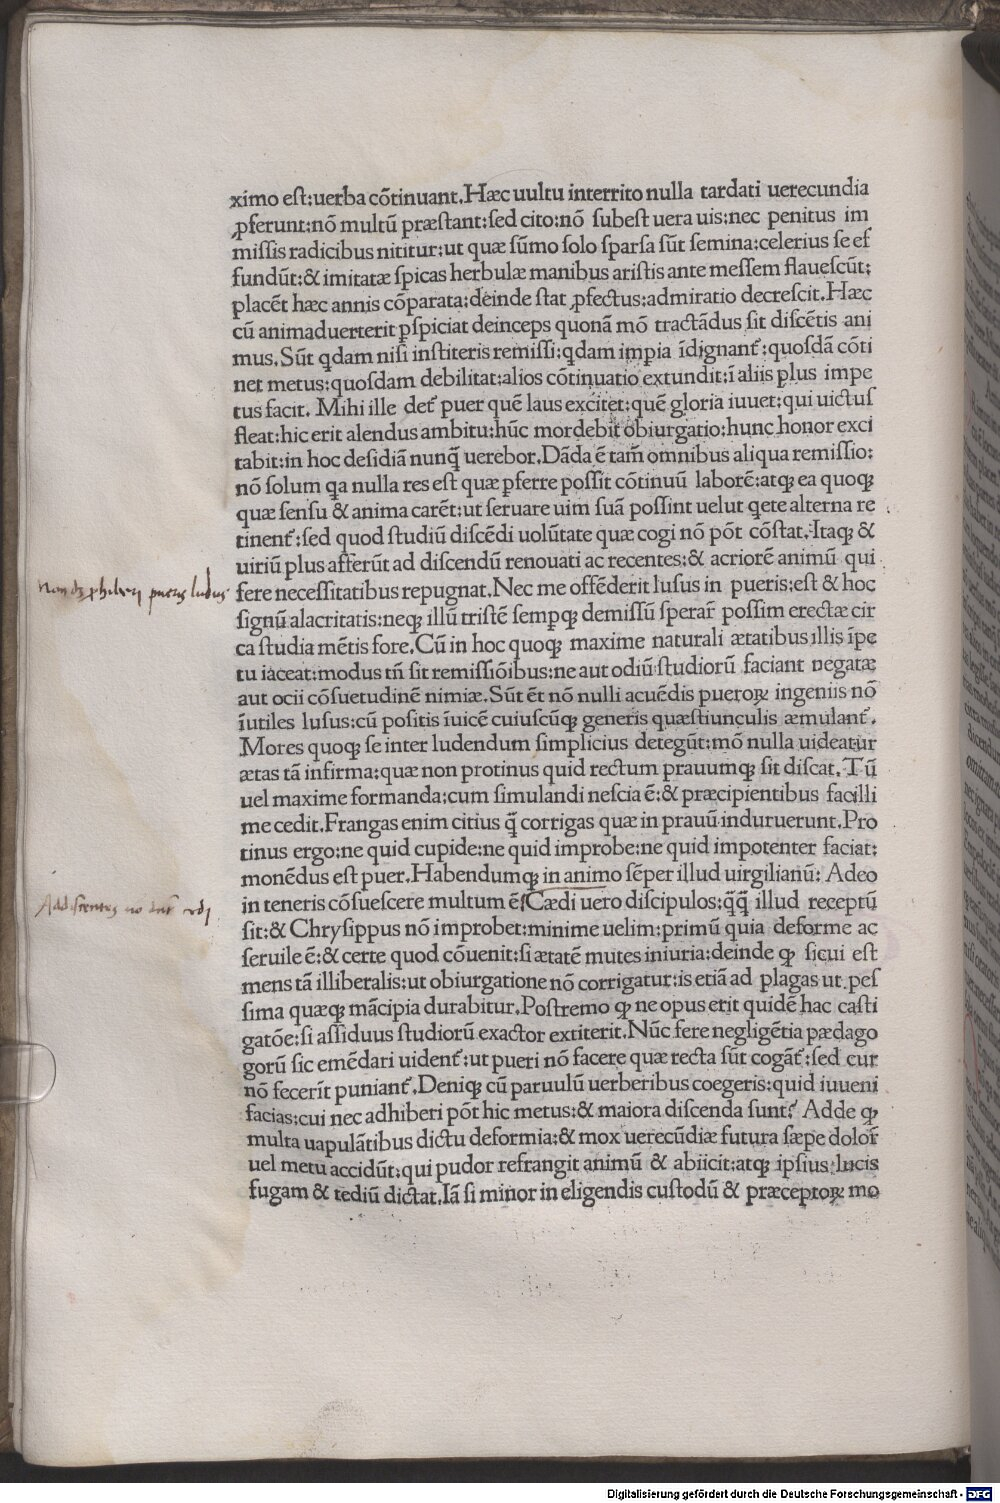 ximo eſt:uerba cōtinuant.Hæc uultu interrito nulla tardati uerecundia
ꝓferunt:nō multū præſtant:ſed cito:nō ſubeſt uera uis:nec penitus im
miſſis radicibus nititur:ut quæ ſūmo ſolo ſparſa ſūt ſemina:celerius ſe eſ
fundūt:& imitatæ ſpicas herbulæ manibus ariſtis ante meſſem flaueſcūt:
placēt hæc annis cōparata:deinde ſtat ꝓfectus:admiratio decreſcit.Hæc
cū animaduerterit ꝑſpiciat deinceps quonā mō tractādus ſit diſcētis ani
mus.Sūt qdam niſi inſtiteris remiſſi:qdam impia īdignant᷑:quoſdā cōti
net metus:quoſdam debilitat:alios cōtinuatio extundit:ī aliis plus impe
tus facit. Mihi ille det᷑ puer quē laus excitet:quē gloria iuuet:qui uictuſ
fleat:hic erit alendus ambitu:hūc mordebit obiurgatio:hunc honor exci
tabit:in hoc deſidiā nunq̄ uerebor.Dāda ē tam̄ omnibus aliqua remiſſio:
nō ſolum qa nulla res eſt quæ ꝑferre poſſit cōtinuū laborē:atqꝫ ea quoqꝫ
quæ ſenſu & anima carēt:ut ſeruare uim ſuā poſſint uelut qete alterna re
tinent᷑:ſed quod ſtudiū diſcēdi uolūtate quæ cogi nō pōt cōſtat.Itaqꝫ &
uiriū plus afferūt ad diſcendū renouati ac recentes:& acriorē animū qui
fere neceſſitatibus repugnat.Nec me offēderit luſus in pueris:eſt & hoc
ſignū alacritatis:neqꝫ illū triſtē ſempqꝫ demiſſū ſperar̄ poſſim erectæ cir
ca ſtudia mētis fore.Cū in hoc quoqꝫ maxime naturali ætatibus illis īpe
tu iaceat:modus tn̄ ſit remiſſiōibus:ne aut odiū ſtudiorū faciant negatæ
aut ocii cōſuetudinē nimiæ.Sūt ēt nō nulli acuēdis pueroꝝ ingeniis nō
īutiles luſus:cū poſitis īuicē cuiuſcūqꝫ generis quæſtiunculis æmulant᷑.
Mores quoqꝫ ſe inter ludendum ſimplicius detegūt:mō nulla uideatur
ætas tā infirma:quæ non protinus quid rectum prauumqꝫ ſit diſcat.Tū
uel maxime formanda:cum ſimulandi neſcia ē:& præcipientibus facilli
me cedit.Frangas enim citius q̄ corrigas quæ in prauū induruerunt.Pro
tinus ergo:ne quid cupide:ne quid improbe:ne quid impotenter faciat:
monēdus eſt puer.Habendumqꝫ in animo ſēper illud uirgilianū: Adeo
in teneris cōſueſcere multum ē.Cædi uero diſcipulos:q̄q̄ illud receptū
ſit:& Chryſippus nō improbet:minime uelim:primū quia deforme ac
ſeruile ē:& certe quod cōuenit:ſi ætatē mutes iniuria:deinde ꝙ ſicui eſt
mens tā illiberalis:ut obiurgatione nō corrigatur:is etiā ad plagas ut peſ
ſima quæqꝫ mācipia durabitur.Poſtremo ꝙ ne opus erit quidē hac caſti
gatōe:ſi aſſiduus ſtudiorū exactor extiterit.Nūc fere negligētia pædago
gorū ſic emēdari uident᷑:ut pueri nō facere quæ recta ſūt cogāt᷑:ſed cur
nō fecerīt puniant᷑.Deniqꝫ cū paruulū uerberibus coegeris:quid iuueni
facias:cui nec adhiberi pōt hic metus:& maiora diſcenda ſunt? Adde ꝙ
multa uapulātibus dictu deformia:& mox uerecūdiæ futura ſæpe dolor̄
uel metu accidūt:qui pudor refrangit animū & abiicit:atqꝫ ipſius lucis
fugam & tediū dictat.Iā ſi minor in eligendis cuſtodū & præceptoꝝ mo
pueris ludus
Digitalisierung gefördert durch die Deutsche Forschungsgemeinschaft - DFG